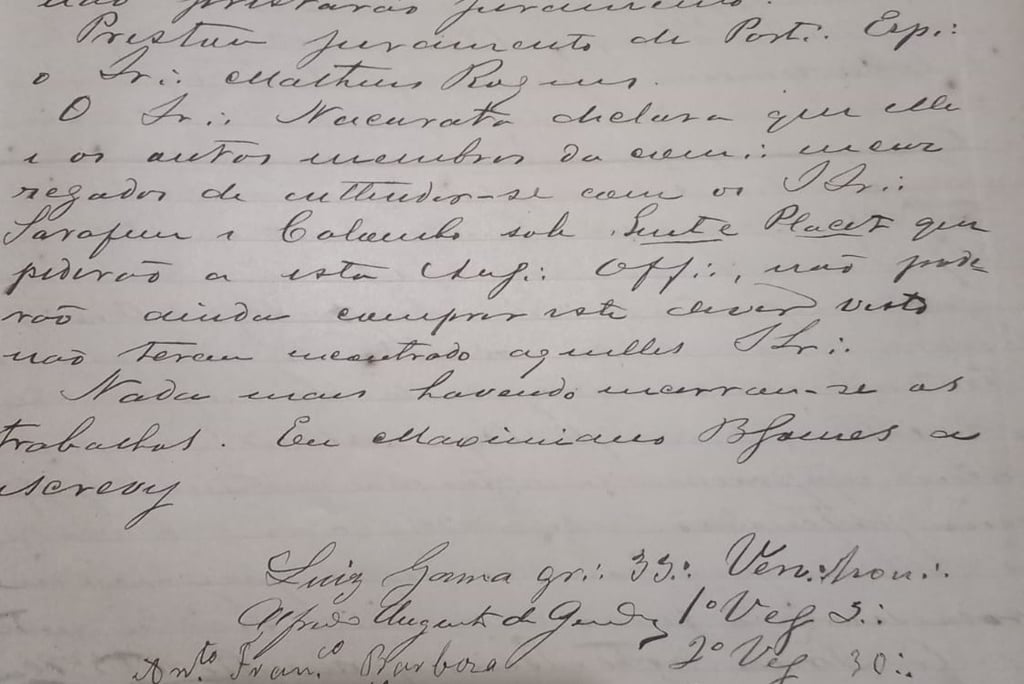 não prestarão juramento.
Prestou juramento de Port∴ Esp∴
o Sr∴ Matheus Rogues.
O Sr∴ Nacarato declara que elle
e os outros membros da com∴ encar
regados de entender-se com os SSr∴
Sarafim e Colombo sob Quite Placet que
pidirão a esta Aug∴ Off∴, não pode
rão ainda comprir este dever visto
não terem encontrado aquelles SSr∴
Nada mais havendo encerram-se os
trabalhos. Eu Maximiano BGomes a
screvy
Luiz Gama gr∴ 33∴ Ven∴
Alfredo Augusto de 1º Vig 3∴
Anto Franco Barboza 2º Vig 30∴